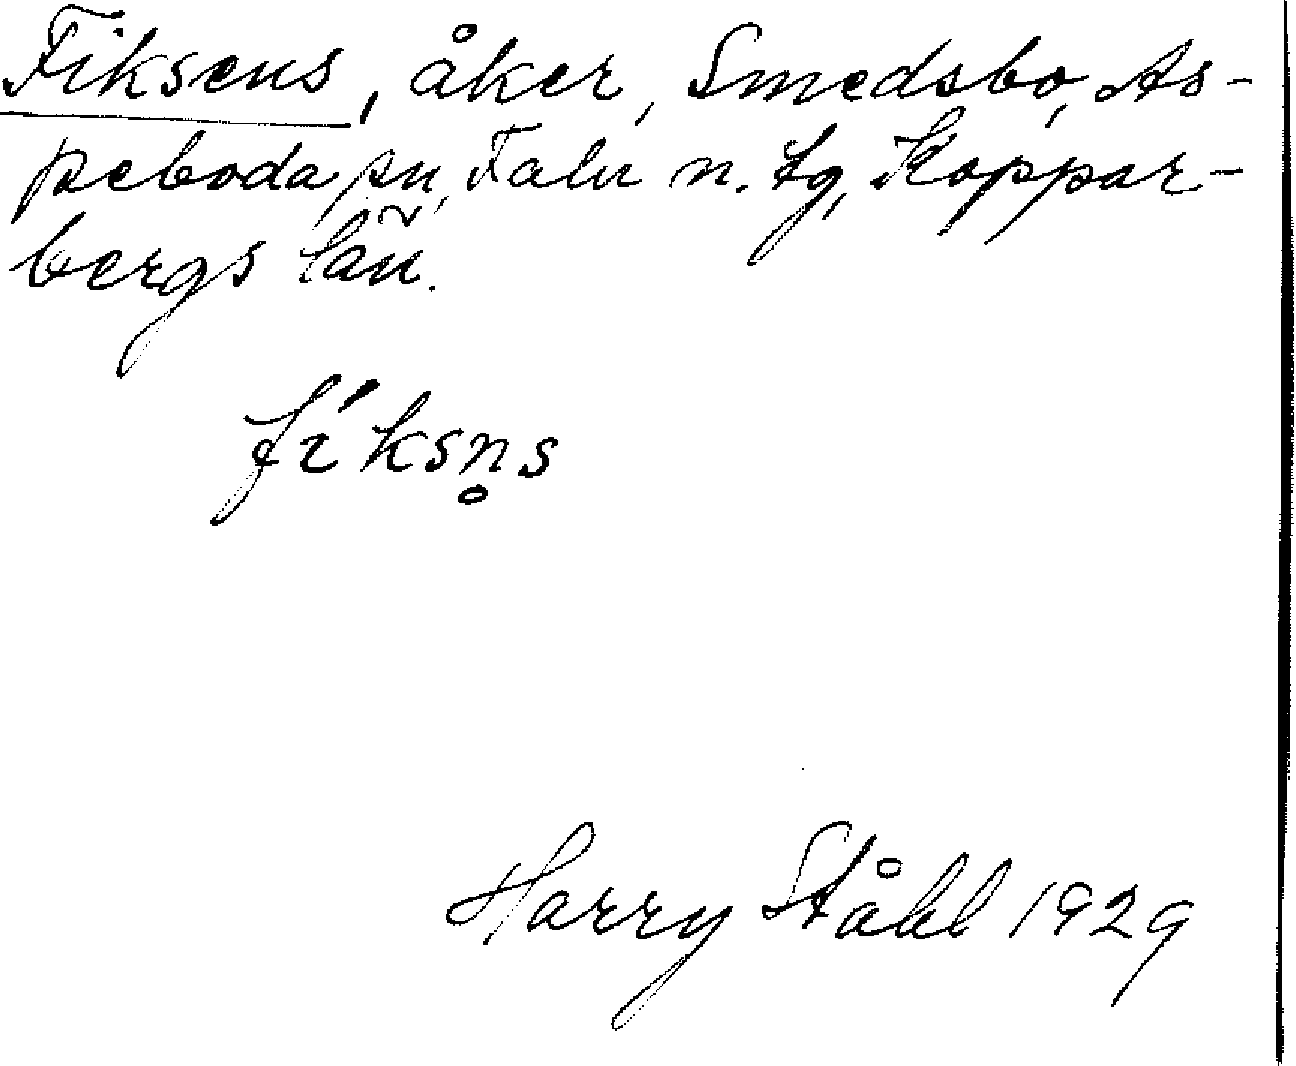 Fiksens, åker, Smedsbo, As-
peboda sn, Falu n. tg, Koppar-
bergs län.
fíksn̥s
Harry Ståhl 1929